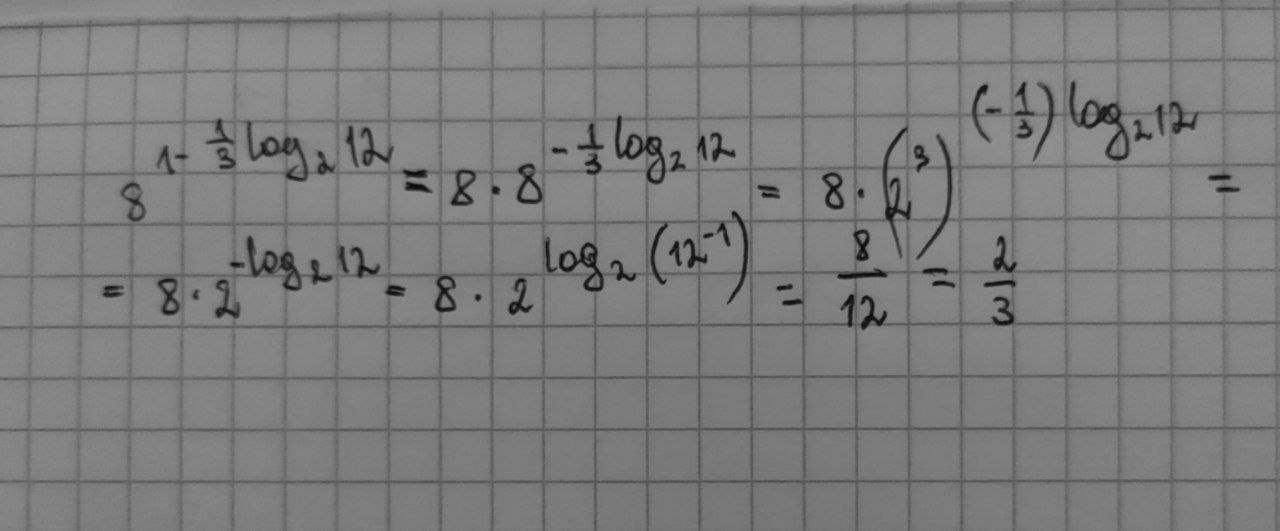 8^{1-\frac{1}{3}\log_2 12} = 8 \cdot 8^{-\frac{1}{3}\log_2 12} = 8 \cdot (2^3)^{(-\frac{1}{3})\log_2 12} =
= 8 \cdot 2^{-\log_2 12} = 8 \cdot 2^{\log_2 (12^{-1})} = \frac{8}{12} = \frac{2}{3}